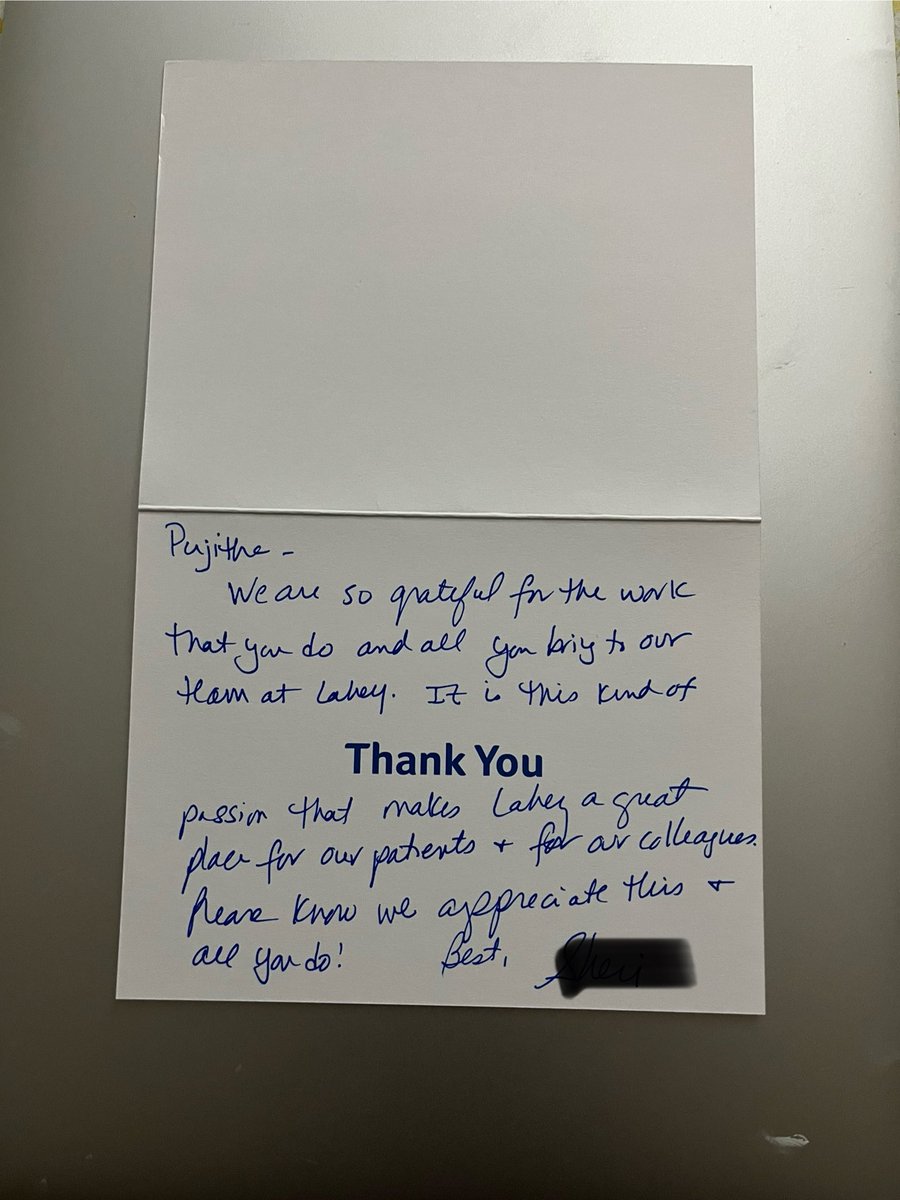 Pujithe -
We are so grateful for the work
that you do and all you bring to our
team at Lahey. It is this kind of
Thank You
passion that makes Lahey a great
place for our patients + for our colleagues.
Please know we appreciate this +
all you do! Best,